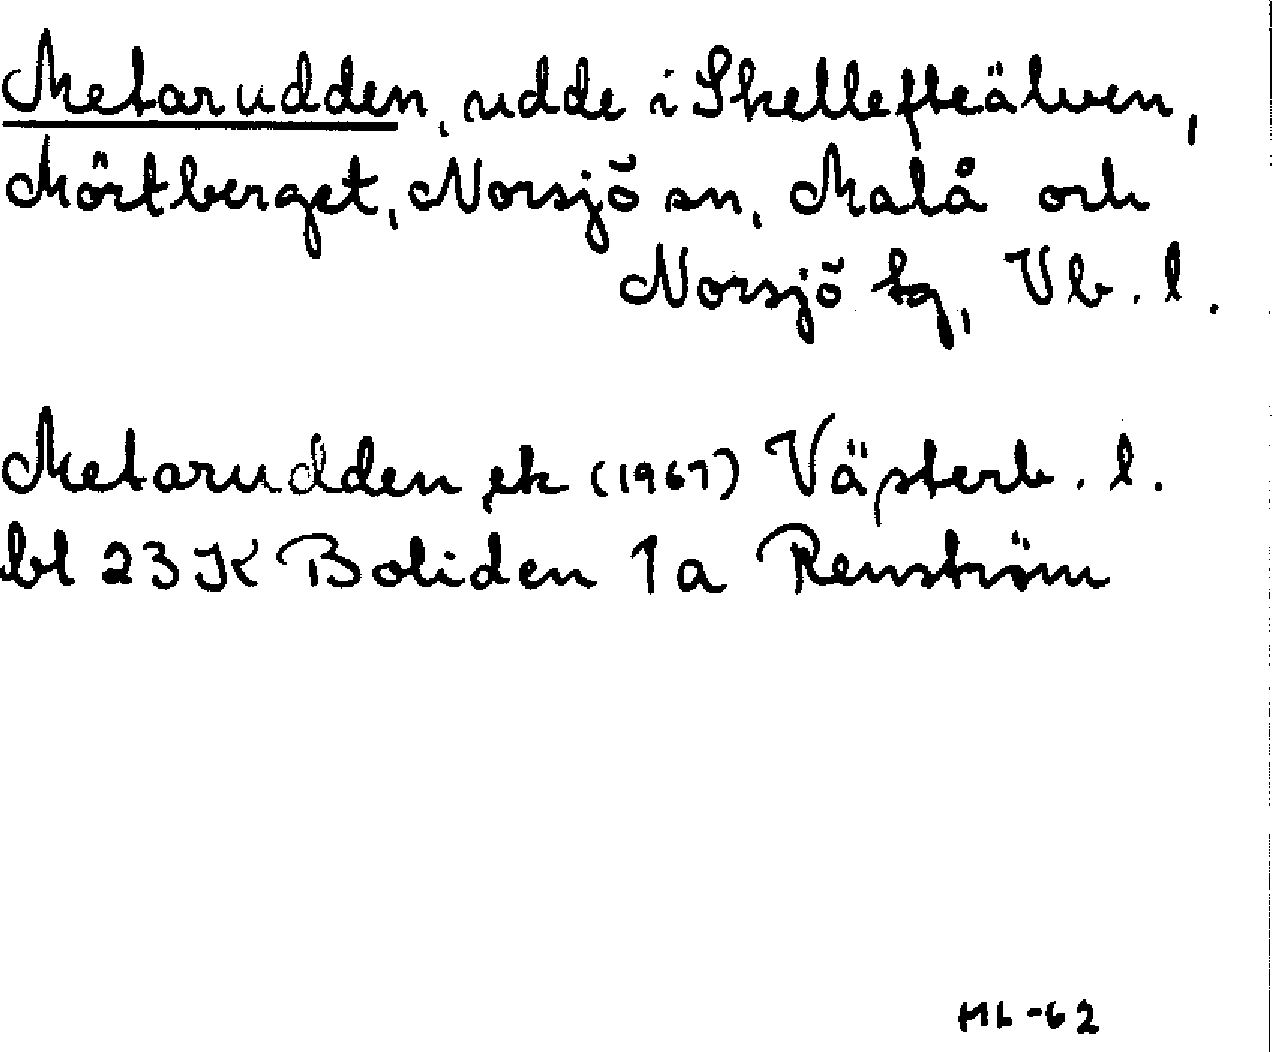 Metarudden, udde i Skellefteälven,
Mörtberget, Norsjö sn, Malå och
Norsjö tg, Vb. l.
Metarudden ek (1967) Västerb. l.
bl 23 K Boliden 1a Renström
ML-62